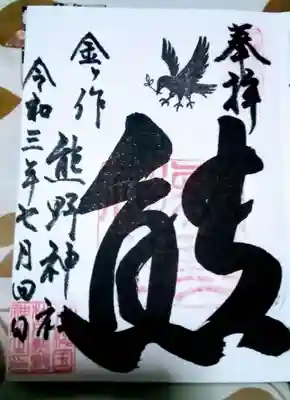 奉拝
熊
金ヶ作 熊野神社
令和三年七月四日